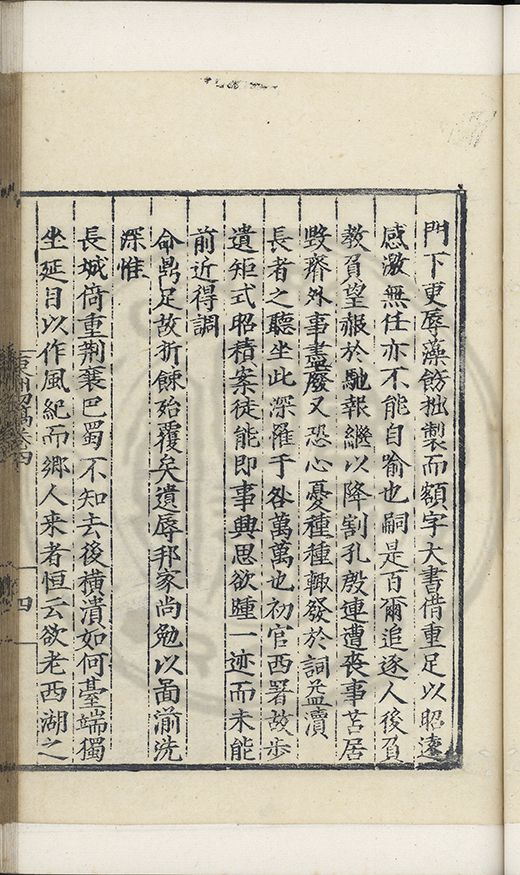 門下更辱藻飭拙製而額字大書借重足以昭遠
感激無任亦不能自喻也嗣是百爾追逐人後負
教負望報於馳報繼以降割孔殷連遭喪事苫居
毀瘠外事盡廢又恐心憂種種輙發於詞益瀆
長者之聽坐此深罹于咎萬萬也初官西署故步
遺矩式昭積案徒能即事興思欲踵一迹而未能
前近得調
命鼎足故折餗殆覆矣遺辱邦家尚勉以面湔洗
深惟
長城倚重荆襄巴蜀不知去後横潰如何臺端獨
坐延目以作風紀而鄉人来者恒云欲老西湖之
卷四
四